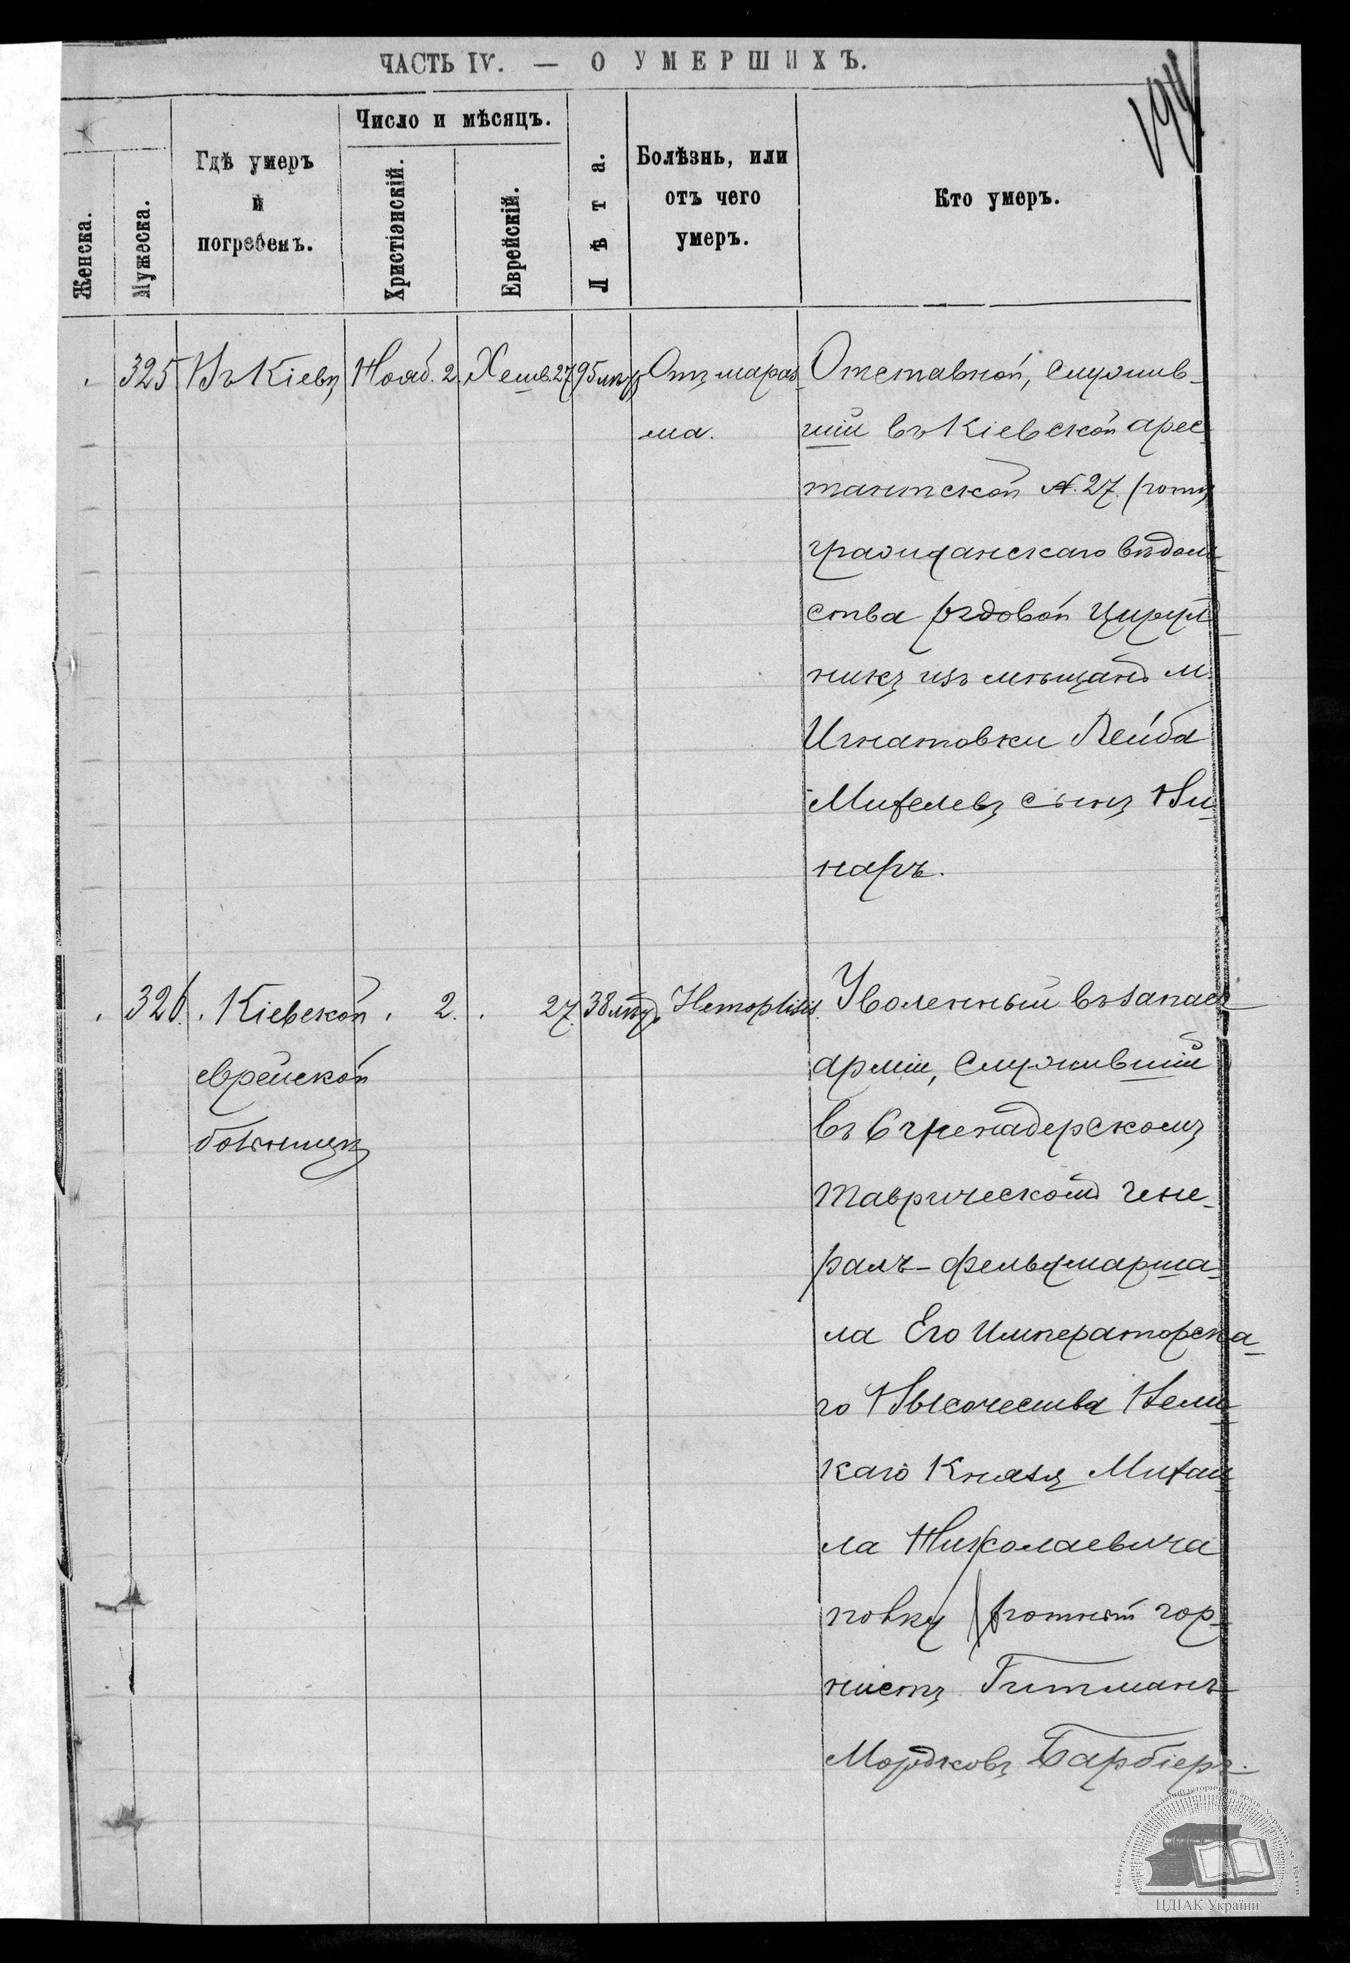 ЧАСТЬ IV. — О УМЕРШИХЪ.
194
Женска.
Мужеска.
Гдѣ умеръ
и
погребенъ.
Число и мѣсяцъ.
Христіэнскій.
Еврейскій.
Лѣта.
Болѣзнь, или
отъ чего
умеръ.
Кто умеръ.
325 Въ Кіевѣ Нояб. 2. Хешв. 27 95 лѣтъ Отъ мараз-
ма.
Отставной, служив-
шій въ Кіевской арес-
тантской №. 27. роты
гражданскаго вѣдом-
ства рядовой Цирул-
никъ изъ мѣщанъ м.
Игнатовки Лейба
Михелевъ сынъ Ви-
наръ.
326. Кіевской 2. 27. 38 лѣтъ Hemoptisis.
еврейской
больницѣ
Уволенный въ запасъ
арміи, служившій
въ 6 гренадерскомъ
Таврическомъ Гене-
ралъ-фельдмарша-
ла Его Императорска-
го Высочества Вели-
каго Князя Михаи-
ла Николаевича
полку ротный гор-
нистъ Гитманъ
Мордковъ Барбіеръ.
ЦДІАК України